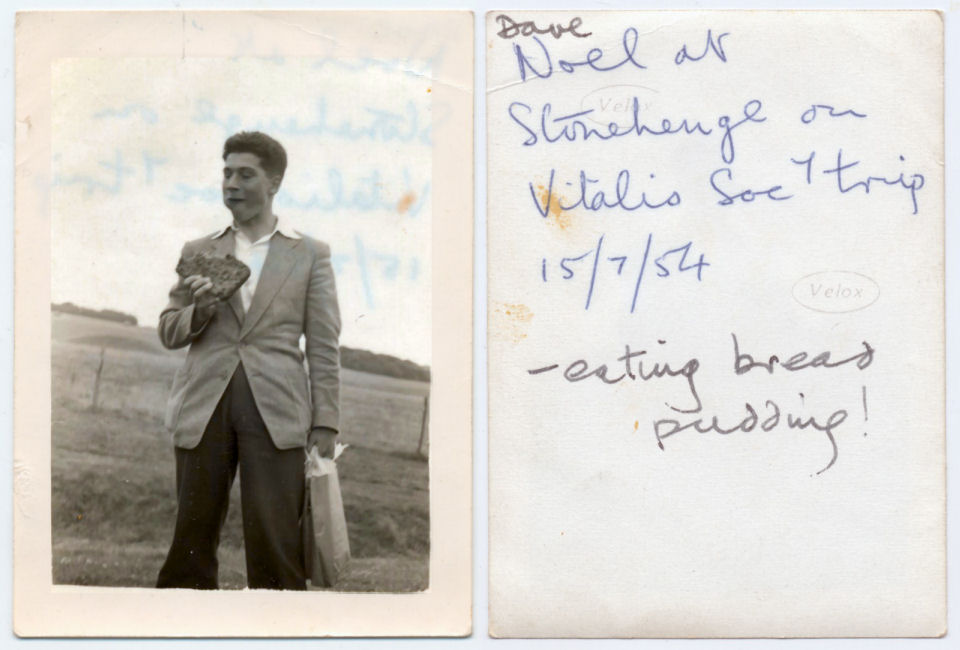 Dave
Noel at
Velox
Stonehenge on
Vitalis Socy trip
15/7/54
Velox
-eating bread
pudding!